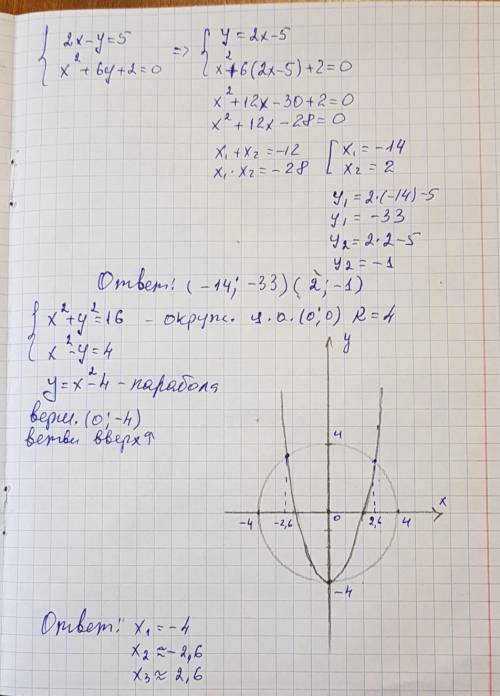 { 2x-y=5 => { y=2x-5
x²+6y+2=0 x²+6(2x-5)+2=0
x²+12x-30+2=0
x²+12x-28=0
x₁+x₂=-12 [ x₁=-14
x₁·x₂=-28 x₂=2
y₁=2·(-14)-5
y₁=-33
y₂=2·2-5
y₂=-1
Ответ: (-14; -33) (2; -1)
{ x²+y²=16 - окруж. ц.о. (0;0) R=4
x²-y=4
y=x²-4 - парабола
верш. (0;-4)
ветви вверх↑
y
4
x
-4 -2,6 0 2,6 4
-4
Ответ: x₁=-4
x₂≈-2,6
x₃≈2,6